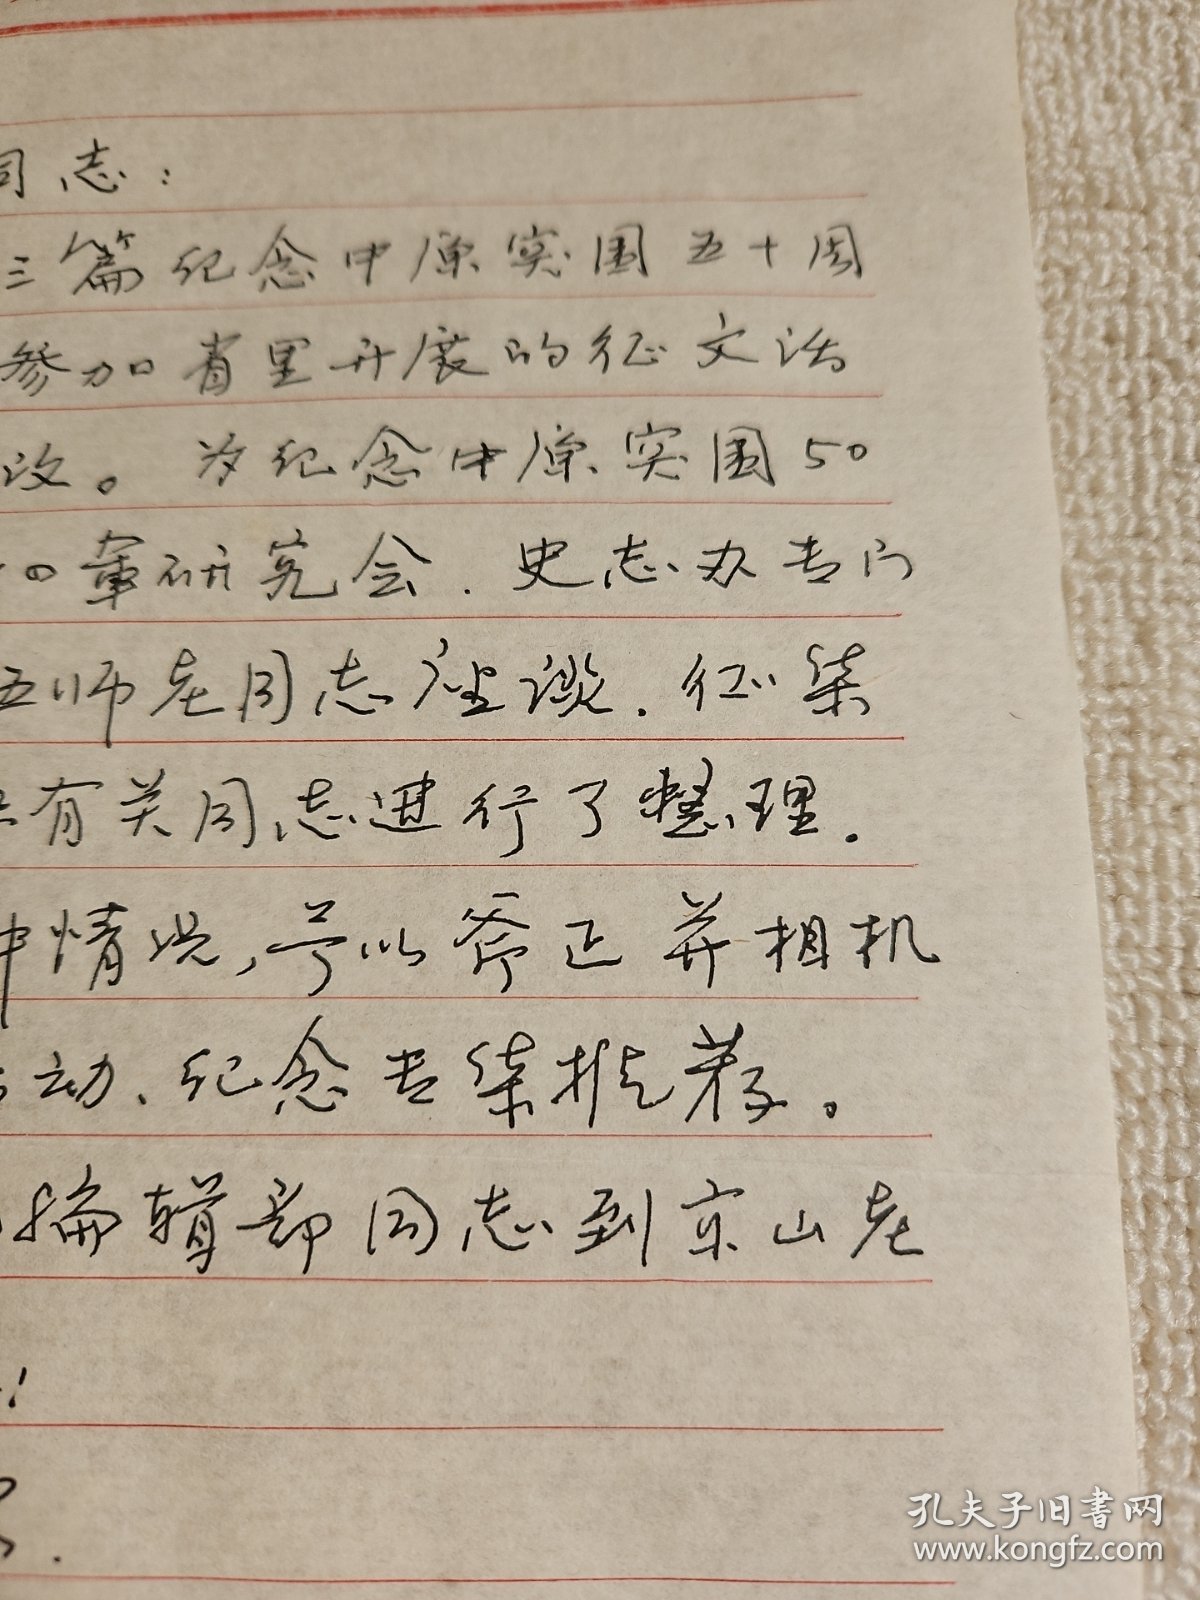 同志：
三篇纪念中原突围五十周
参加省里开展的征文活
改。为纪念中原突围50
革研究会.史志办专门
五师老同志座谈.征集
有关同志进行了整理.
中情况,予以斧正并相机
动、纪念专集推荐。
编辑部同志到京山老
!
孔夫子旧书网
www.kongfz.com